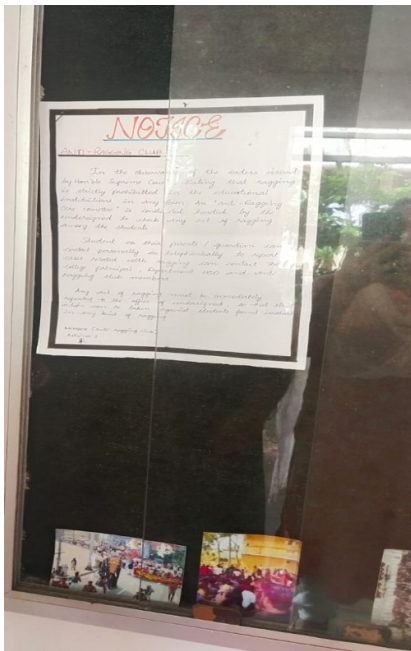 NOTICE
ANTI-RAGGING CLUB
In the of the orders issued
by Supreme Court stating that ragging
is strictly prohibited in the educational
institutions in any form. An "anti-Ragging
is headed by the
undersigned to check any act of ragging
among the students.
Student or their parents / guardian can
contact personally or telephonically to report
case related with ragging can contact the
college principal / Department HOD and anti-
ragging club members.
Any act of ragging must be immediately
reported to the office of undersigned, so that strict
action can be taken against students found
in any kind of ragging.